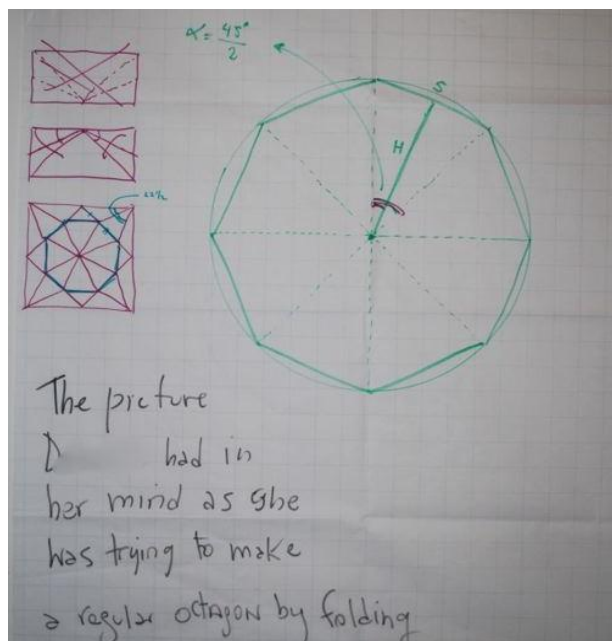 α = 45°/2
S
H
22½
The picture
D had in
her mind as she
was trying to make
a regular octagon by folding